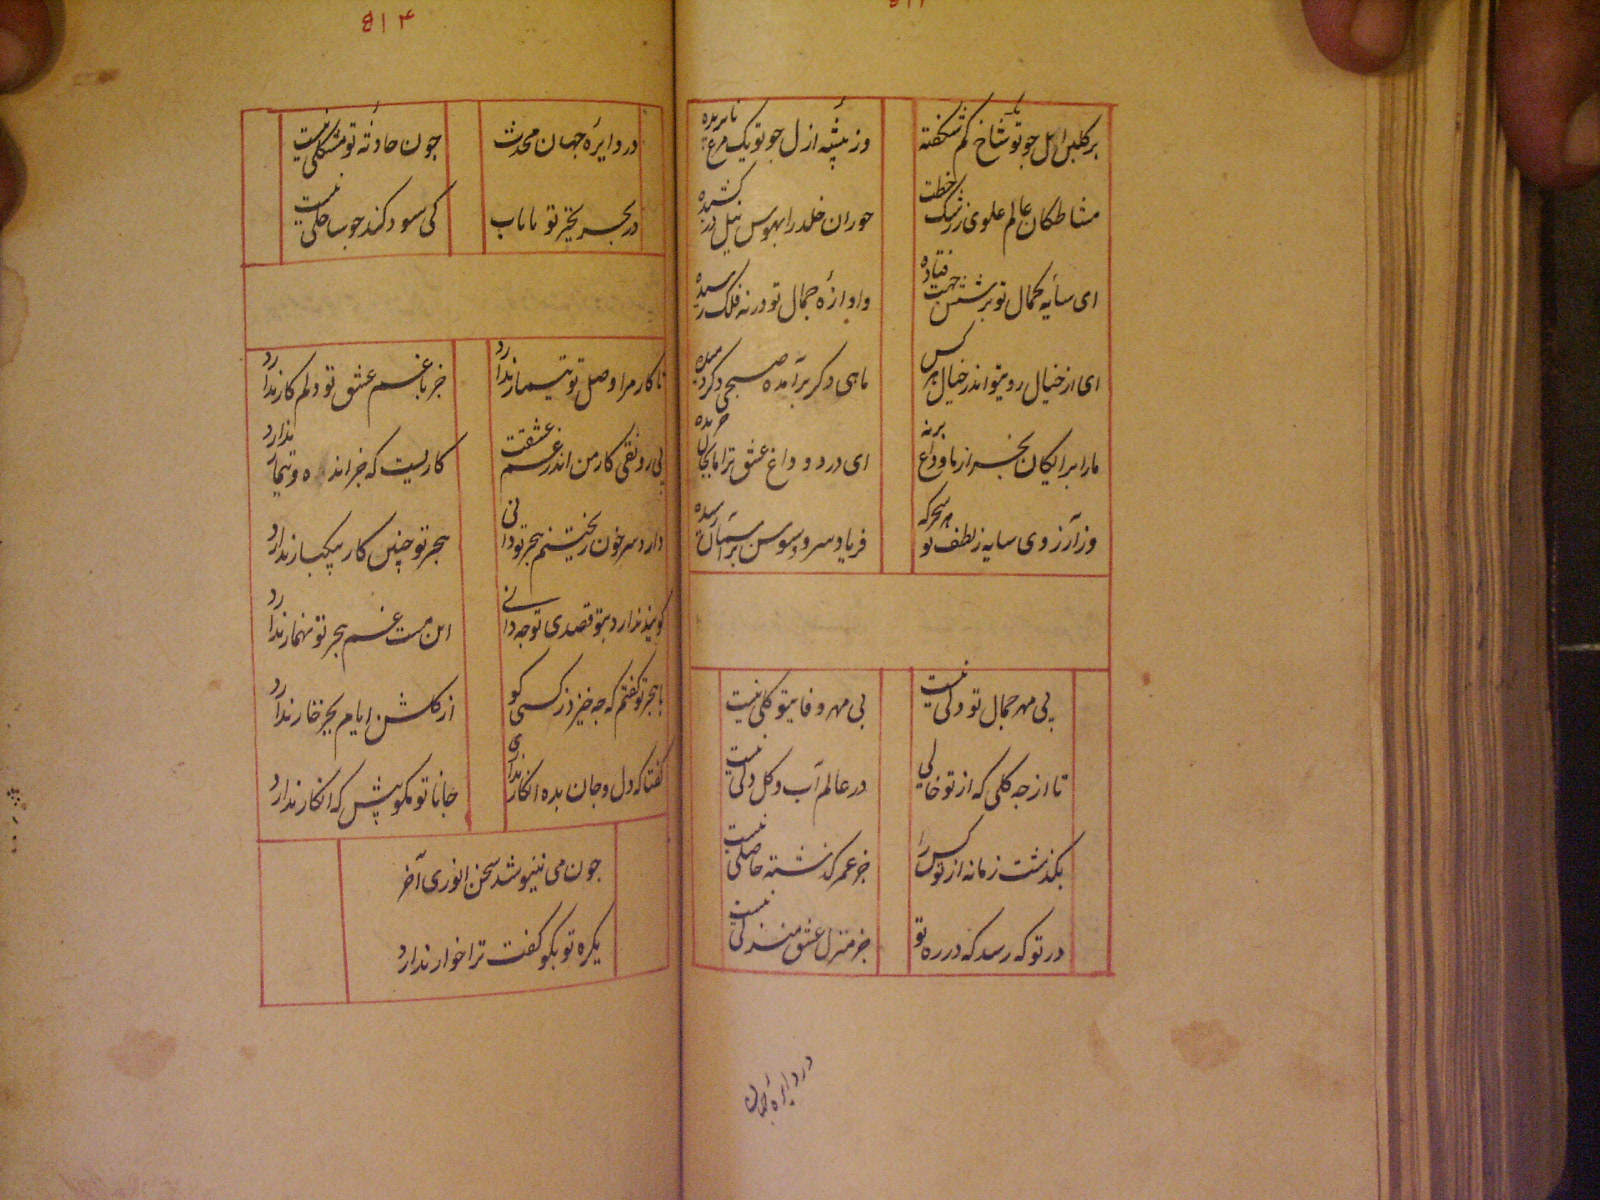 بر گلبن ازل چو تو شاخ گم شکفته
وز بیشه ازل چو تو یک مرغ نا پریده
مشاطگان عالم علوی ز رشک خطت
حوران خلد را بهوس نیل در کشیده
ای سایه کمال تو بر شش جهت فتاده
واوازه جمال تو در نه فلک رسیده
ای از خیال روی تو اندر خیال هر کس
ماهی دکر برآمده صبحی دکر دمیده
ما را برایکان بخر از ما و داغ برنه
ای درد و داغ عشق ترا ما بجان خریده
وز آرزوی سایه ز لطف تو هر سحرکه
فریاد سرو و سوسن بر آسمان رسیده
بی مهر جمال تو دلی نیست
بی مهر و فا یتو کلی نیست
تا از چه کلی که از تو خالی
در عالم آب و کل دلی نیست
بکذشت زمانه از تو کس را
جز عمر کذشته حاصلی نیست
در تو که رسد که در ره تو
جز منزل عشق منزلی نیست
در دایره جهان
۵۱۴
در دایره جهان محدث
جون حادثه تو مشکلی نیست
در بحر تحیر تو نا یاب
کی سود کند جو ساحلی نیست
تا کار مرا وصل تو تیمار ندارد
جز با غم عشق تو دلم کار ندارد
بی رونقی کار من اندر غم عشقت
کاریست که جز اندوه و تیمار ندارد
دارد سر خون ریختنم هجر تو دانی
هجر تو چنین کار بیکبار ندارد
کویند ندارد بتو قصدی تو چه دانی
این هست غم هجر تو نهمار ندارد
با هجر تو کفتم که چه خیزد ز کسی کو
از کلشن ایام بجز خار ندارد
کفتا که دل و جان بده انکار نداری
جانا تو مکو پیش که انکار ندارد
جون می ننیوشد سخن انوری آخر
یکره تو بکو کفت ترا خوار ندارد